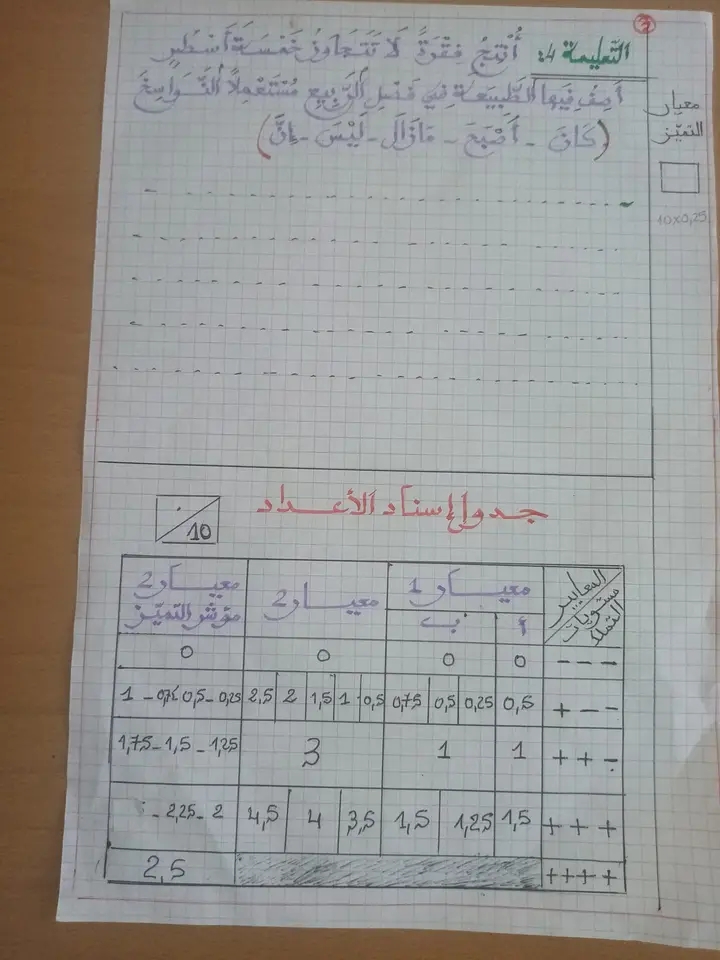 2
التعليمة 4: أُنْتِجُ فِقْرَةً لَا تَتَجَاوَزُ خَمْسَةَ أَسْطُرٍ
أَصِفُ فِيهَا الطَّبِيعَةَ فِي فَصْلِ الرَّبِيعِ مُسْتَعْمِلًا النَّوَاسِخَ
(كَانَ - أَصْبَحَ - مَازَالَ - لَيْسَ - إِنَّ)
معيار
التميّز
10x0,25
جدول إسناد الأعداد
10
المعايير معيار 1 معيار 2 معيار 2
مستويات التملك أ ب مؤشر التميّز
--- 0 0 0 0
+-- 0,5 0,25 0,5 0,75 0,5 1 1,5 2 2,5 0,25 - 0,5 - 0,75 - 1
++- 1 1 3 1,25 - 1,5 - 1,75
+++ 1,5 1,25 1,5 3,5 4 4,5 2 - 2,25 -
++++ 2,5